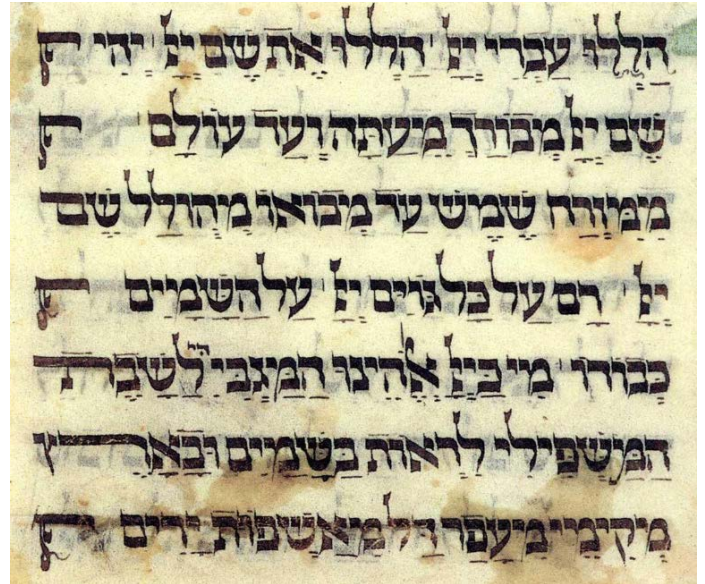 הַלְלוּ עַבְדֵי יְיָ הַלְלוּ אֶת שֵׁם יְיָ יְהִי
שֵׁם יְיָ מְבוֹרָךְ מֵעַתָּה וְעַד עוֹלָם
מִמִּזְרַח שֶׁמֶשׁ עַד מְבוֹאוֹ מְהוּלָל שֵׁם
יְיָ רָם עַל כָּל גּוֹיִם יְיָ עַל הַשָּׁמַיִם
כְּבוֹדוֹ מִי כַּייָ אֱלֹהֵינוּ הַמַּגְבִּיהִי לָשָׁבֶת
הַמַּשְׁפִּילִי לִרְאוֹת בַּשָּׁמַיִם וּבָאָרֶץ
מְקִימִי מֵעָפָר דָּל מֵאַשְׁפּוֹת יָרִים